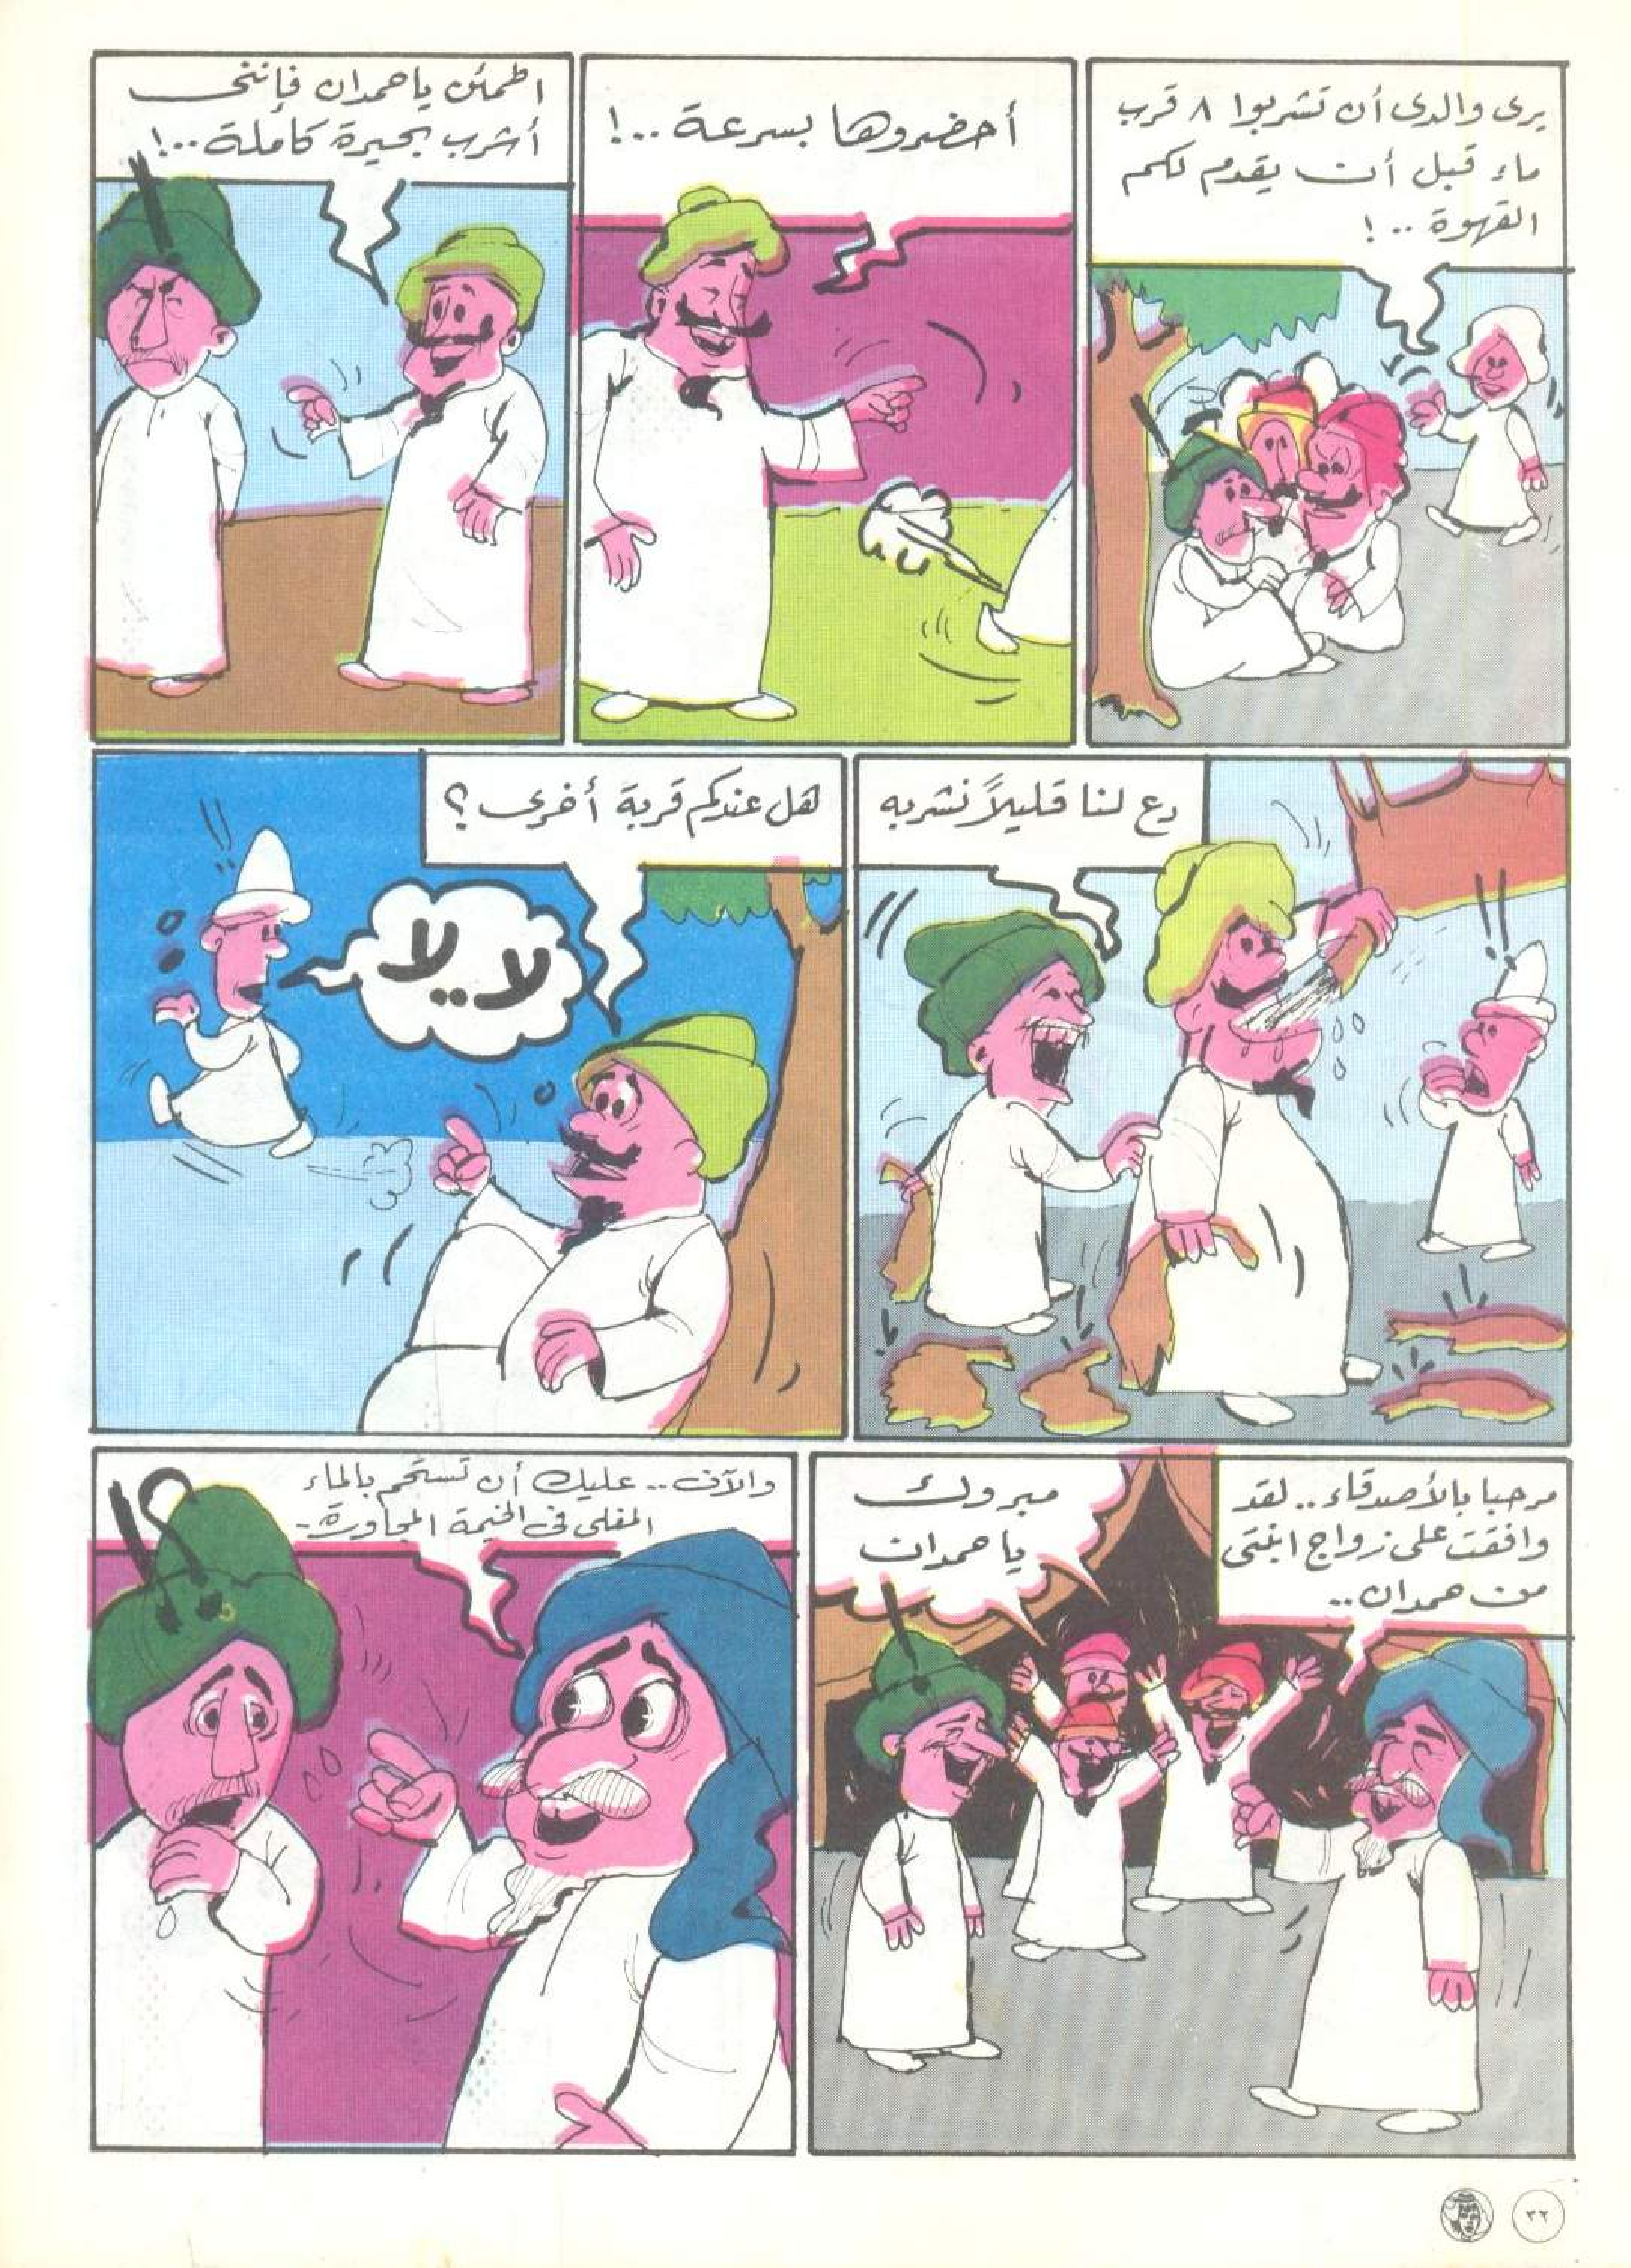 يرى والدى أن تشربوا ٨ قرب
ماء قبل أن يقدم لكم
القهوة ..!
أحضروها بسرعة ..!
اطمئن ياحمدان فإننى
أشرب بحيرة كاملة ..!
دع لنا قليلاً نشربه
هل عندكم قربة أخرى ؟
لا لا
مرحبا بالأصدقاء .. لقد
وافقت على زواج ابنتى
من حمدان ..
مبروك
يا حمدان
والآن .. عليك أن تستحم بالماء
المغلى فى الخيمة المجاورة -
٣٢